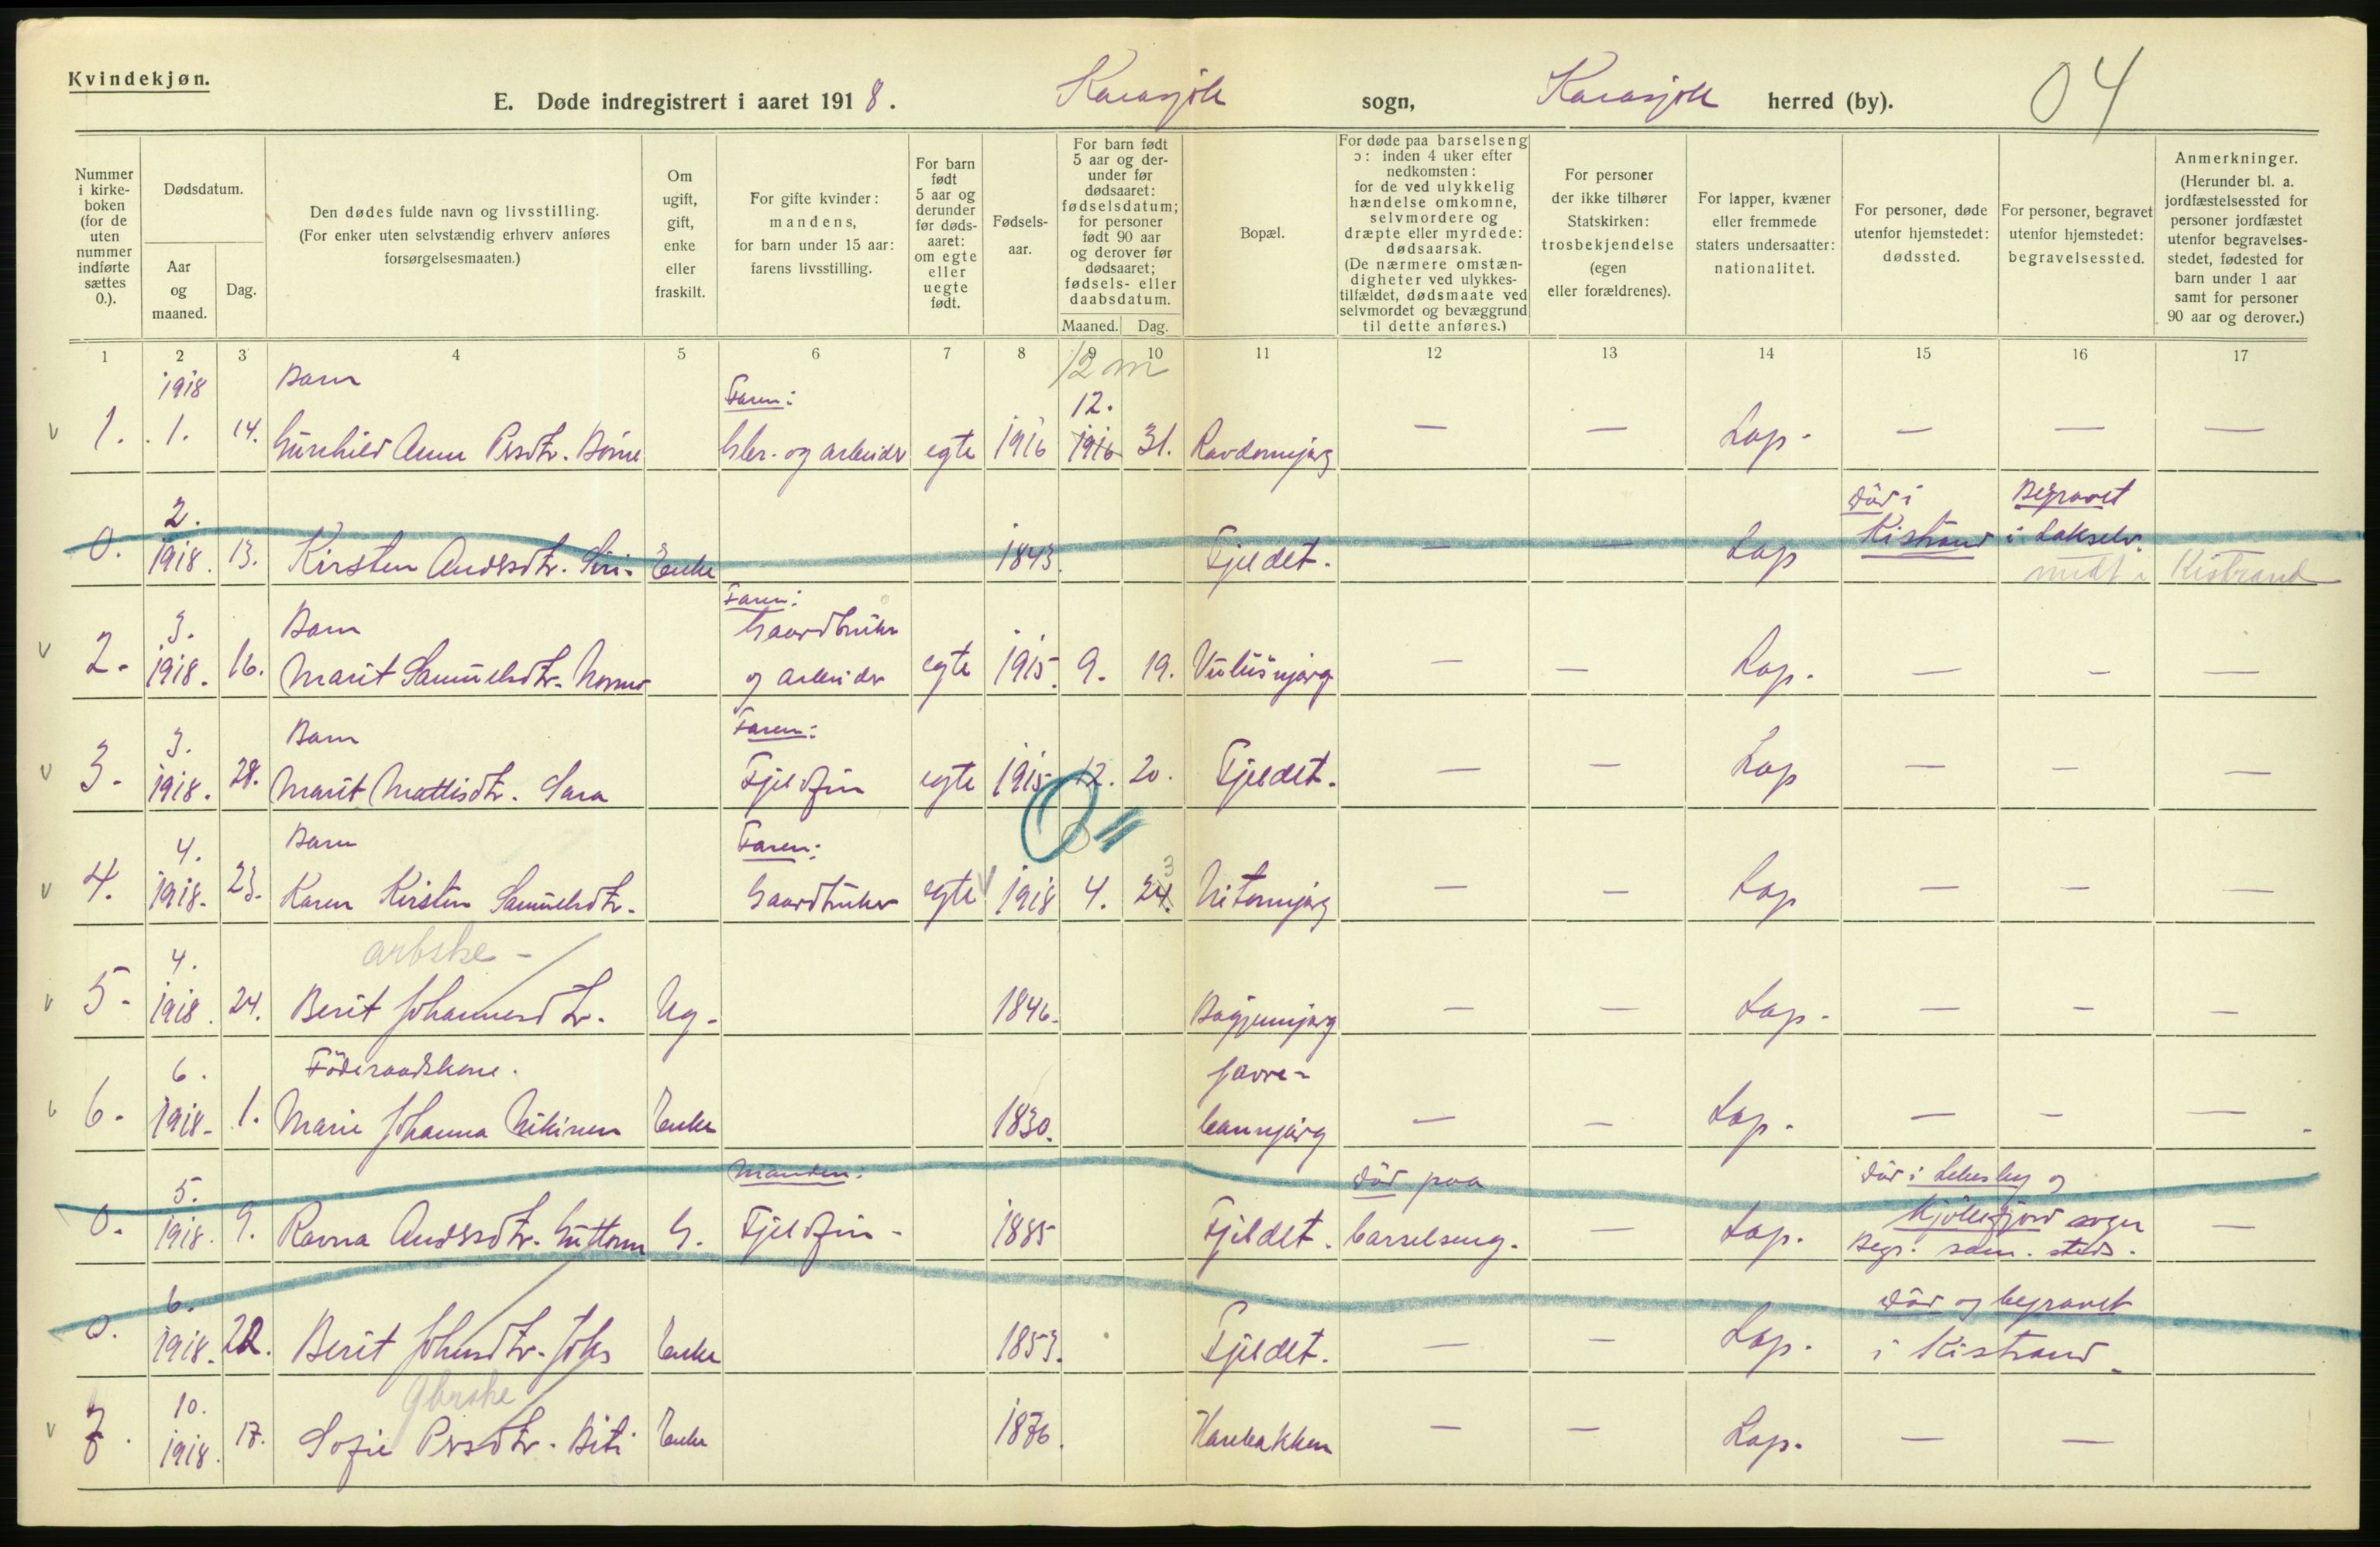 Kvindekjøn.
E. Døde indregistrert i aaret 1918. Karasjok sogn, Karasjok herred (by). 04
Nummer i kirke-boken (for de uten nummer indførte sættes 0.).
Dødsdatum.
Aar og maaned.
Dag.
Den dødes fulde navn og livsstilling. (For enker uten selvstændig erhverv anføres forsørgelsesmaaten.)
Om ugift, gift, enke eller fraskilt.
For gifte kvinder: mandens, for barn under 15 aar: farens livsstilling.
For barn født 5 aar og derunder før døds-aaret: om egte eller uegte født.
Fødsels-aar.
For barn født 5 aar og der-under før dødsaaret: fødselsdatum; for personer født 90 aar og derover før dødsaaret; fødsels- eller daabsdatum.
Maaned. Dag.
Bopæl.
For døde paa barselseng ɔ: inden 4 uker efter nedkomsten: for de ved ulykkelig hændelse omkomne, selvmordere og dræpte eller myrdede: dødsaarsak. (De nærmere omstæn-digheter ved ulykkes-tilfældet, dødsmaate ved selvmordet og bevæggrund til dette anføres.)
For personer der ikke tilhører Statskirken: trosbekjendelse (egen eller forældrenes).
For lapper, kvæner eller fremmede staters undersaatter: nationalitet.
For personer, døde utenfor hjemstedet: dødssted.
For personer, begravet utenfor hjemstedet: begravelsessted.
Anmerkninger. (Herunder bl. a. jordfæstelsessted for personer jordfæstet utenfor begravelses-stedet, fødested for barn under 1 aar samt for personer 90 aar og derover.)
1 2 3 4 5 6 7 8 9 10 11 12 13 14 15 16 17
12 m
1918 Barn Faren: 12.
1. 1. 14. Gunhild Anna Persdtr. Gbr. og arbeider egte 1916 1916 31. — — Lap. — — —
2. død i Begravet
0. 1918. 13. Kirsten Andersdtr. Siri. Enke 1843. Fjeldet. — — Lap Kistrand i Lakselv.
medt i Kistrand
Faren:
3. Barn Gaardbruker
2. 1918. 16. Marit Samuelsdtr. og arbeider egte 1915. 9. 19. — — Lap. — — —
3. Barn Faren:
3. 1918. 28. Marit Mattisdtr. Sara Fjeldfin egte 1915 12. 20. Fjeldet. — — Lap — — —
0
4. Barn Faren: 3
4. 1918. 23. Karen Kirsten Samuelsdtr. Gaardbruker egte 1918 4. 24. — — Lap — — —
arbske -
4.
5. 1918. 24. Berit Johannesdtr. Ug. 1846. — — Lap. — — —
6. Föderaadskone. Javre-
6. 1918. 1. Marie Johanna Enke 1830. — — Lap. — — —
5. Manden: død paa død i Lebesby og
0. 1918. 9. Ravna Andersdtr. Guttorm G. Fjeldfin - 1885 Fjeldet. barselseng. — Lap. Kjöllefjord sogn —
Begr. sam. steds.
6. død og begravet
0. 1918. 22. Berit Johnsdtr. Johs Enke 1853. Fjeldet. — — Lap. i Kistrand.
gbrske
10.
7. 1918. 17. Sofie Persdtr. Biti Enke 1876. Harebakken — — Lap. — —